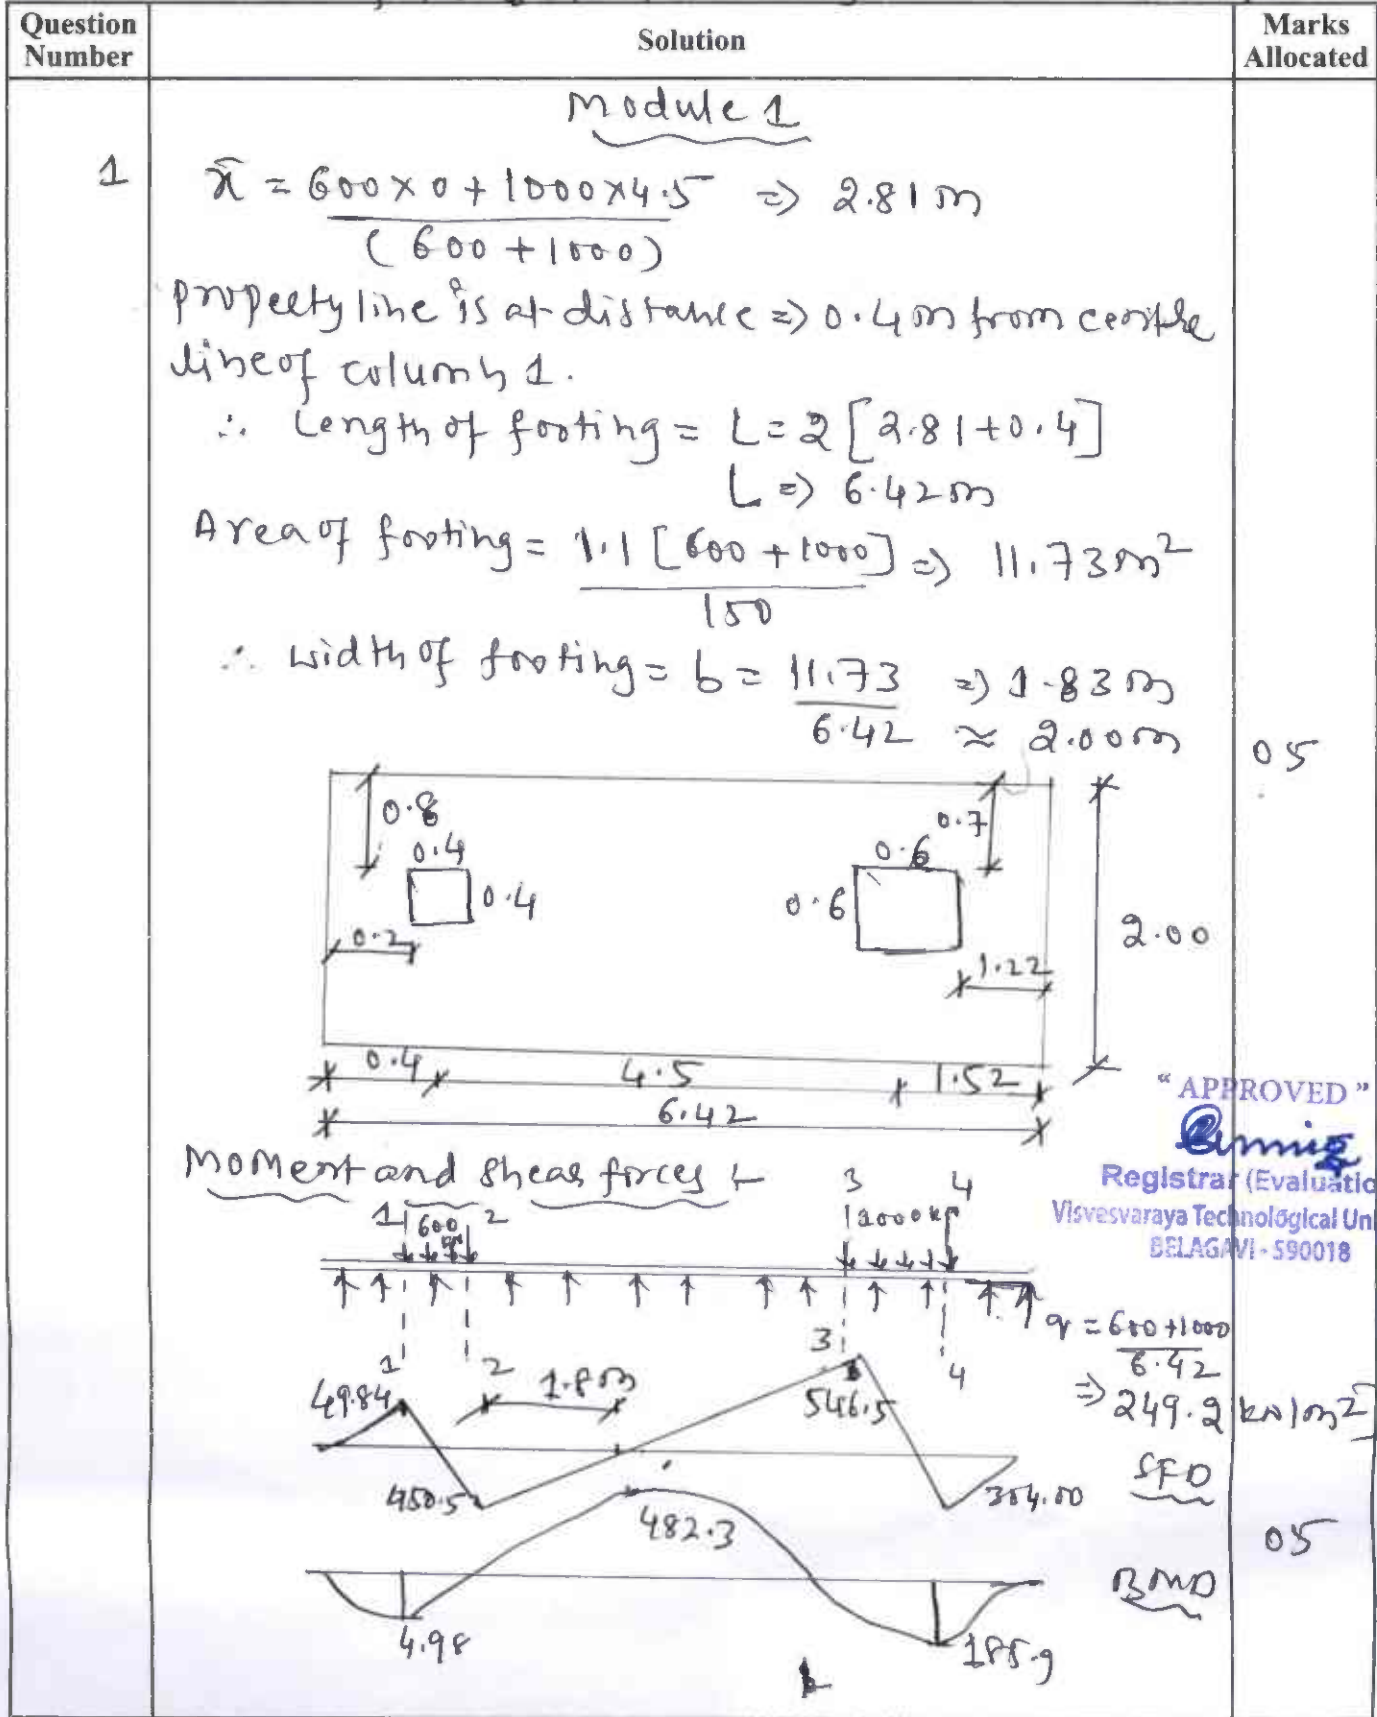 Question Number
Solution
Marks Allocated
Module 1
1
x̄ = 600×0 + 1000×4.5 / (600 + 1000) => 2.81 m
propeety line is at distance => 0.4 m from
line of column 1.
∴ Length of footing = L = 2 [2.81+0.4]
L => 6.42 m
Area of footing = 1.1 [600 + 1000] / 150 => 11.73 m²
∴ width of footing = b = 11.73 / 6.42 => 1.83 m
≈ 2.00 m
05
0.8
0.4
0.4
0.2
0.7
0.6
0.6
1.22
2.00
0.4
4.5
1.52
6.42
"APPROVED"
Registrar (Evaluatio
Visvesvaraya Technological Uni
BELAGAVI - 590018
Moment and Shear forces
1
600
2
3
4
1
2
3
4
q = 600+1000 / 6.42
=> 249.2 kN/m²
49.84
1.8 m
546.5
450.5
304.00
SFD
482.3
05
BMD
4.98
185.9